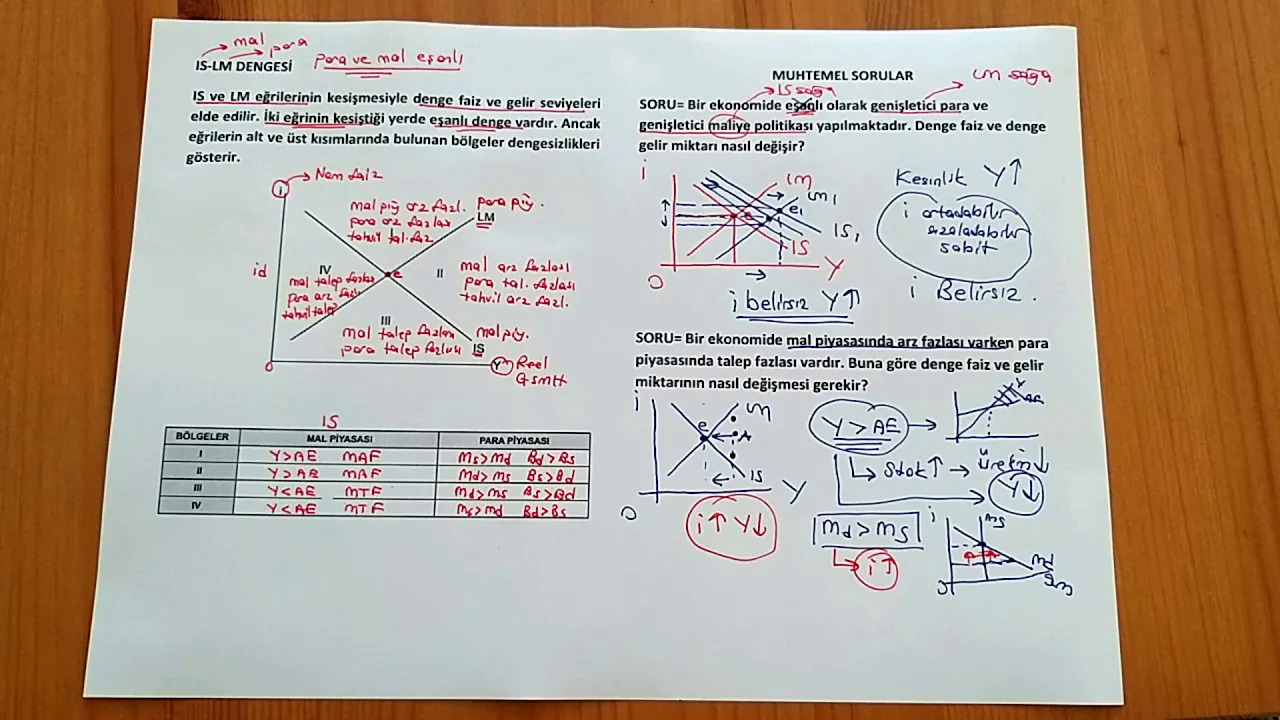 mal
para
IS-LM DENGESİ para ve mal eşanlı
IS ve LM eğrilerinin kesişmesiyle denge faiz ve gelir seviyeleri
elde edilir. İki eğrinin kesiştiği yerde eşanlı denge vardır. Ancak
eğrilerin alt ve üst kısımlarında bulunan bölgeler dengesizlikleri
gösterir.
i
Nom faiz
mal piy arz fazl.
para arz fazlası
tahvil tal. faz
para piy.
LM
id
IV
mal talep fazlası
para arz fazl
tahvil talep
e
II
mal arz fazlası
para tal. fazlası
tahvil arz fazl.
III
mal talep fazlası
para talep fazlası
mal piy.
IS
0
Y
Reel
GSMH
IS
BÖLGELER MAL PİYASASI PARA PİYASASI
I Y>AE MAF Ms>Md Bd>Bs
II Y>AE MAF Md>Ms Bs>Bd
III Y<AE MTF Md>Ms Bs>Bd
IV Y<AE MTF Ms>Md Bd>Bs
MUHTEMEL SORULAR
LM sağa
IS sağa
SORU= Bir ekonomide eşanlı olarak genişletici para ve
genişletici maliye politikası yapılmaktadır. Denge faiz ve denge
gelir miktarı nasıl değişir?
i
LM
LM1
e
e1
IS1
IS
0
Y
i belirsiz Y↑
Kesinlik Y↑
i artadabilir
azaladabilir
sabit
i Belirsiz.
SORU= Bir ekonomide mal piyasasında arz fazlası varken para
piyasasında talep fazlası vardır. Buna göre denge faiz ve gelir
miktarının nasıl değişmesi gerekir?
i
LM
e
A
IS
0
Y
i↑ Y↓
Y > AE
Y
AE
Stok↑ → Üretim↓
Y↓
Md > Ms
i↑
i
Ms
Md
0